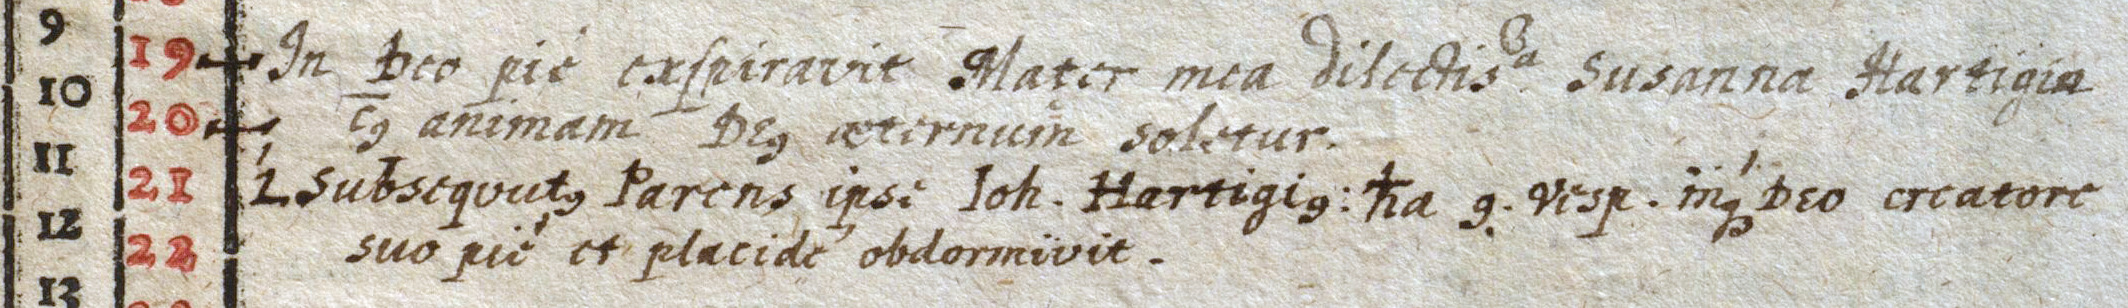 9
19 In Deo pié exspiravit Mater mea dilectis.ª Susanna Hartigia
10
20 animam DEꝰ æternum soletur.
11
21 Subsequutꝰ Parens ipse Ioh. Hartigiꝰ: ħa 9. Vesp. Deo creatore
12
22 suo pié et placidé obdormivit.
13